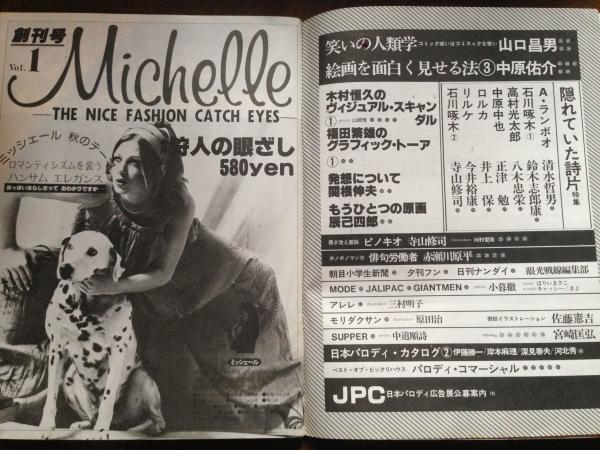 創刊号
Vol. 1
Michelle
THE NICE FASHION CATCH EYES
ミッシェール 秋のテ
ロマンティシズムを装う
ハンサム エレガンス
狩人の眼ざし
580yen
ミッシェール
笑いの人類学 コミック或いはコミスックな笑い 山口昌男
絵画を面白く見せる法③ 中原佑介
木村恒久の
ヴィジュアル・スキャン
ダル
①
福田繁雄の
グラフィック・トーア
①
発想について
関根伸夫
もうひとつの原画
辰己四郎
隠れていた詩片 特集
A・ランボオ 清水哲男
石川啄木① 鈴木志郎康
高村光太郎 八木忠栄
中原中也 正津 勉
ロルカ 井上 保
リルケ 今井裕康
石川啄木② 寺山修司
書き改め童話 ピノキオ 寺山修司
ホノボノマンガ 俳句労働者 赤瀬川原平
朝目小学生新聞 夕刊フン 日刊ナンダイ 眼光戦線編集部
MODE JALIPAC GIANTMEN 小暮徹
アレレ 三村明子
モリダクサン 原田治 表紙イラストレーション 佐藤憲吉
SUPPER 中道順詩 宮崎匡弘
日本パロディ・カタログ② 伊藤勝一/岸本麻理/深見春夫/河北秀
ベスト・オブ・ビックリハウス パロディ・コマーシャル
JPC 日本パロディ広告展公募案内